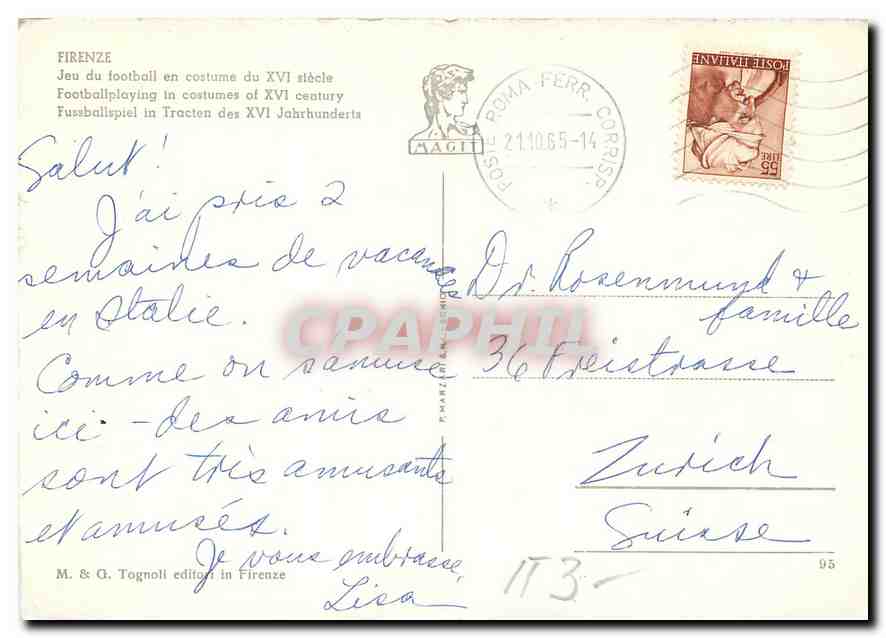 FIRENZE
Jeu du football en costume du XVI siècle
Footballplaying in costumes of XVI century
Fussballspiel in Tracten des XVI Jahrhunderts
MAGIT
POSTE ROMA FERR. CORRISP.
21.10.65-14
POSTE ITALIANE
LIRE 55
Salut!
J'ai pris 2
semaines de vacances
en Italie.
Comme on s'amuse
ici - des amis
sont très amusants
et amusés.
Je vous embrasse,
Lisa
Dr. Rosenmund &
famille
36 Freistrasse
Zurich
Suisse
CPAPHIL
M. & G. Tognoli editori in Firenze
95
IT 3-